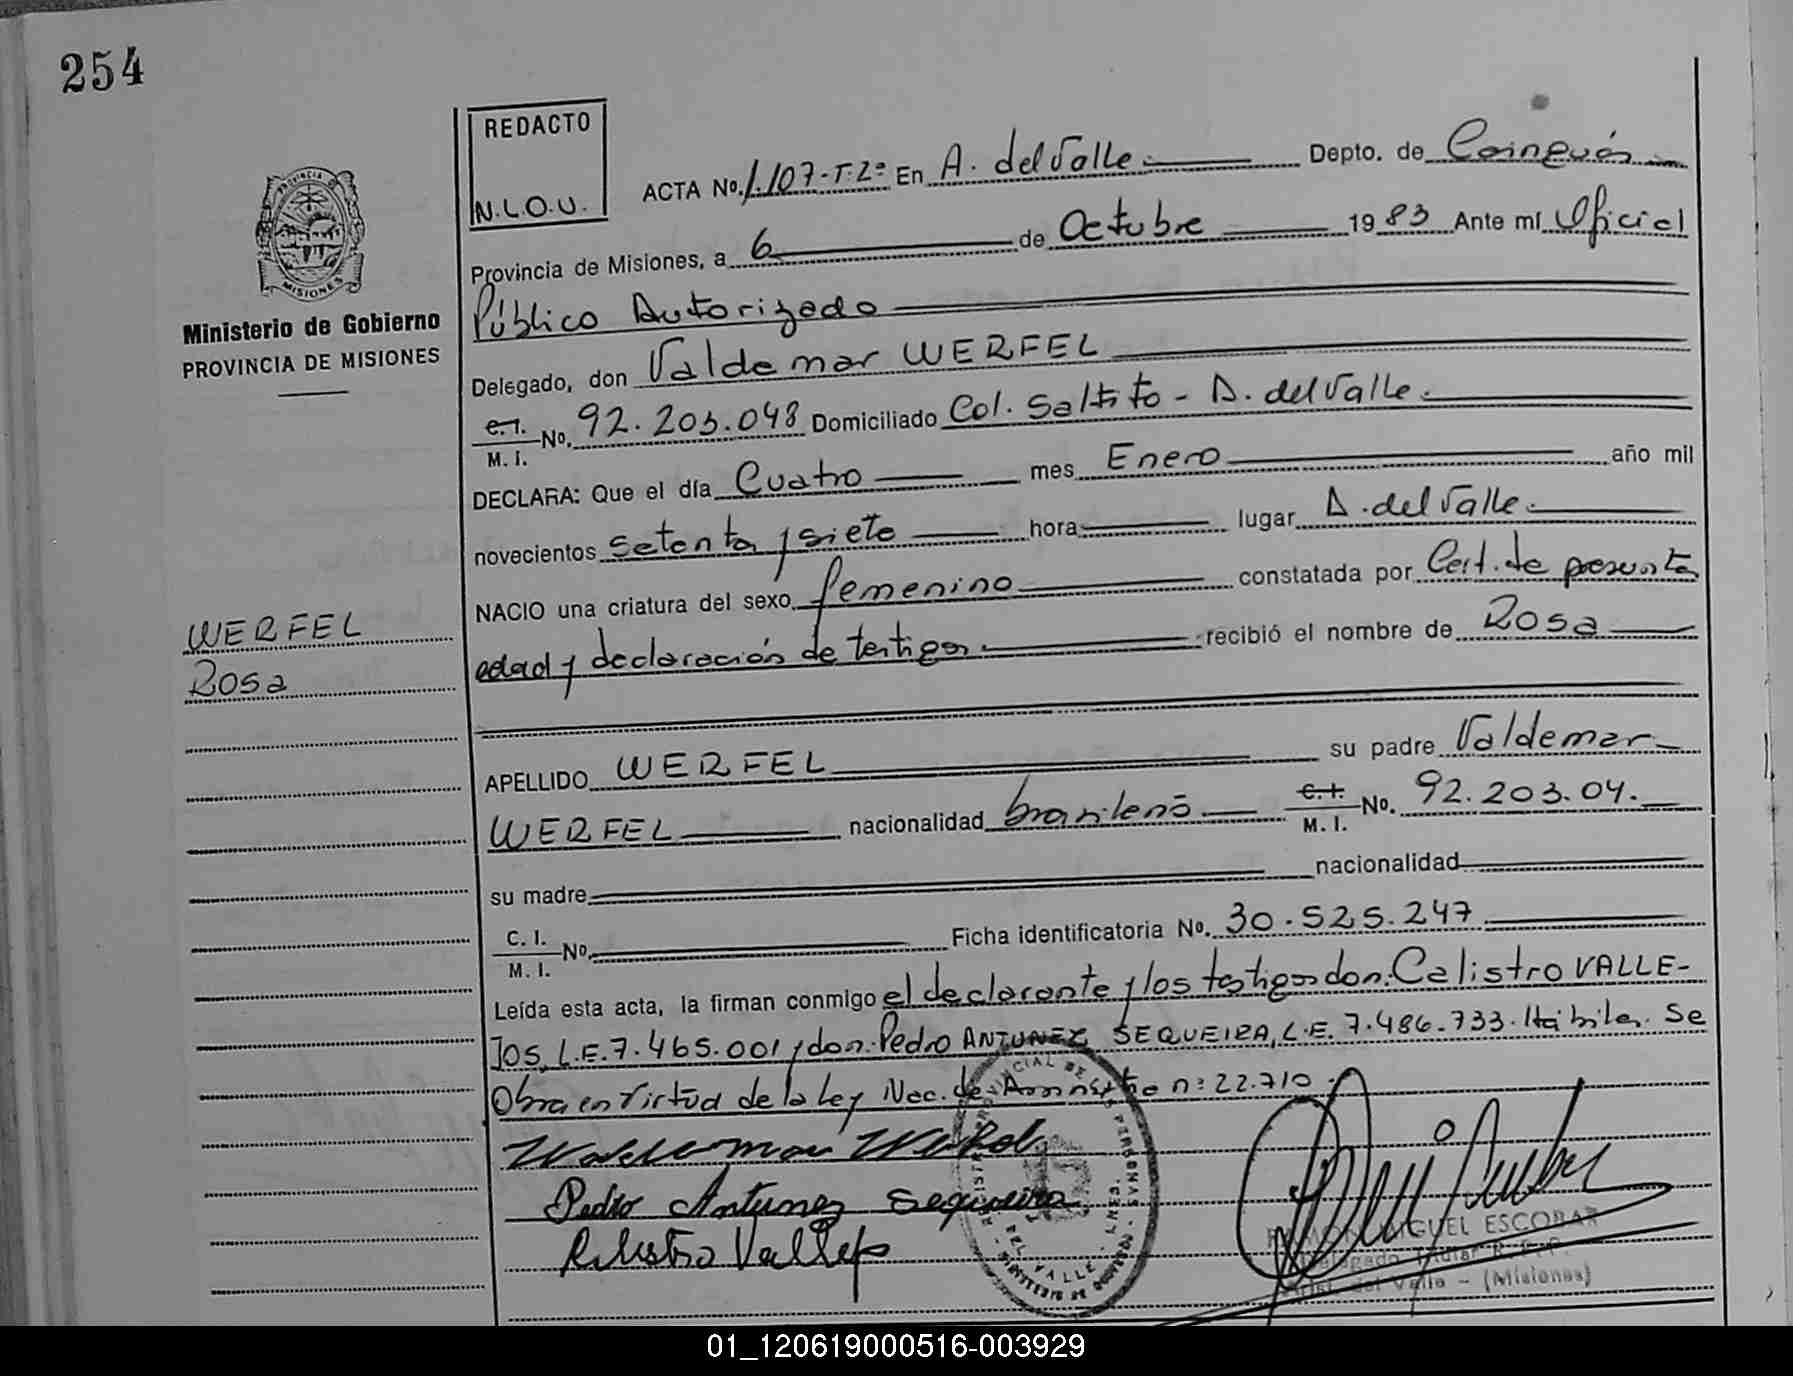 254
REDACTO
N.L.O.U.
ACTA No. 1.107-T.2º En A. del Valle Depto. de Cainguás
Provincia de Misiones, a 6 de Octubre 1983 Ante mí Oficial
Público Autorizado
PROVINCIA
MISIONES
Ministerio de Gobierno
PROVINCIA DE MISIONES
Delegado, don Valdemar WERFEL
C.I. M.I. No. 92.203.048 Domiciliado Col. Saltito - A. del Valle.
DECLARA: Que el día Cuatro mes Enero año mil
novecientos setenta y siete hora lugar A. del Valle.
NACIO una criatura del sexo femenino constatada por Cert. de presunta
edad y declaración de testigos. recibió el nombre de Rosa
WERFEL
Rosa
APELLIDO WERFEL su padre Valdemar
WERFEL nacionalidad brasileño C.I. M.I. No. 92.203.04.
su madre nacionalidad
C.I. M.I. No. Ficha identificatoria No. 30.525.247
Leída esta acta, la firman conmigo el declarante y los testigos don: Calistro VALLE-
JOS, L.E. 7.465.001 y don: Pedro ANTUNEZ SEQUEIRA, L.E. 7.486.733. Hábiles. Se
Obra en Virtud de la Ley Nac. de Amnistia nº 22.710.
Pedro Antunez Sequeira
RAMON MIGUEL ESCOBAR
Delegado Titular R.P.P.
Arist. del Valle - (Misiones)
01_120619000516-003929